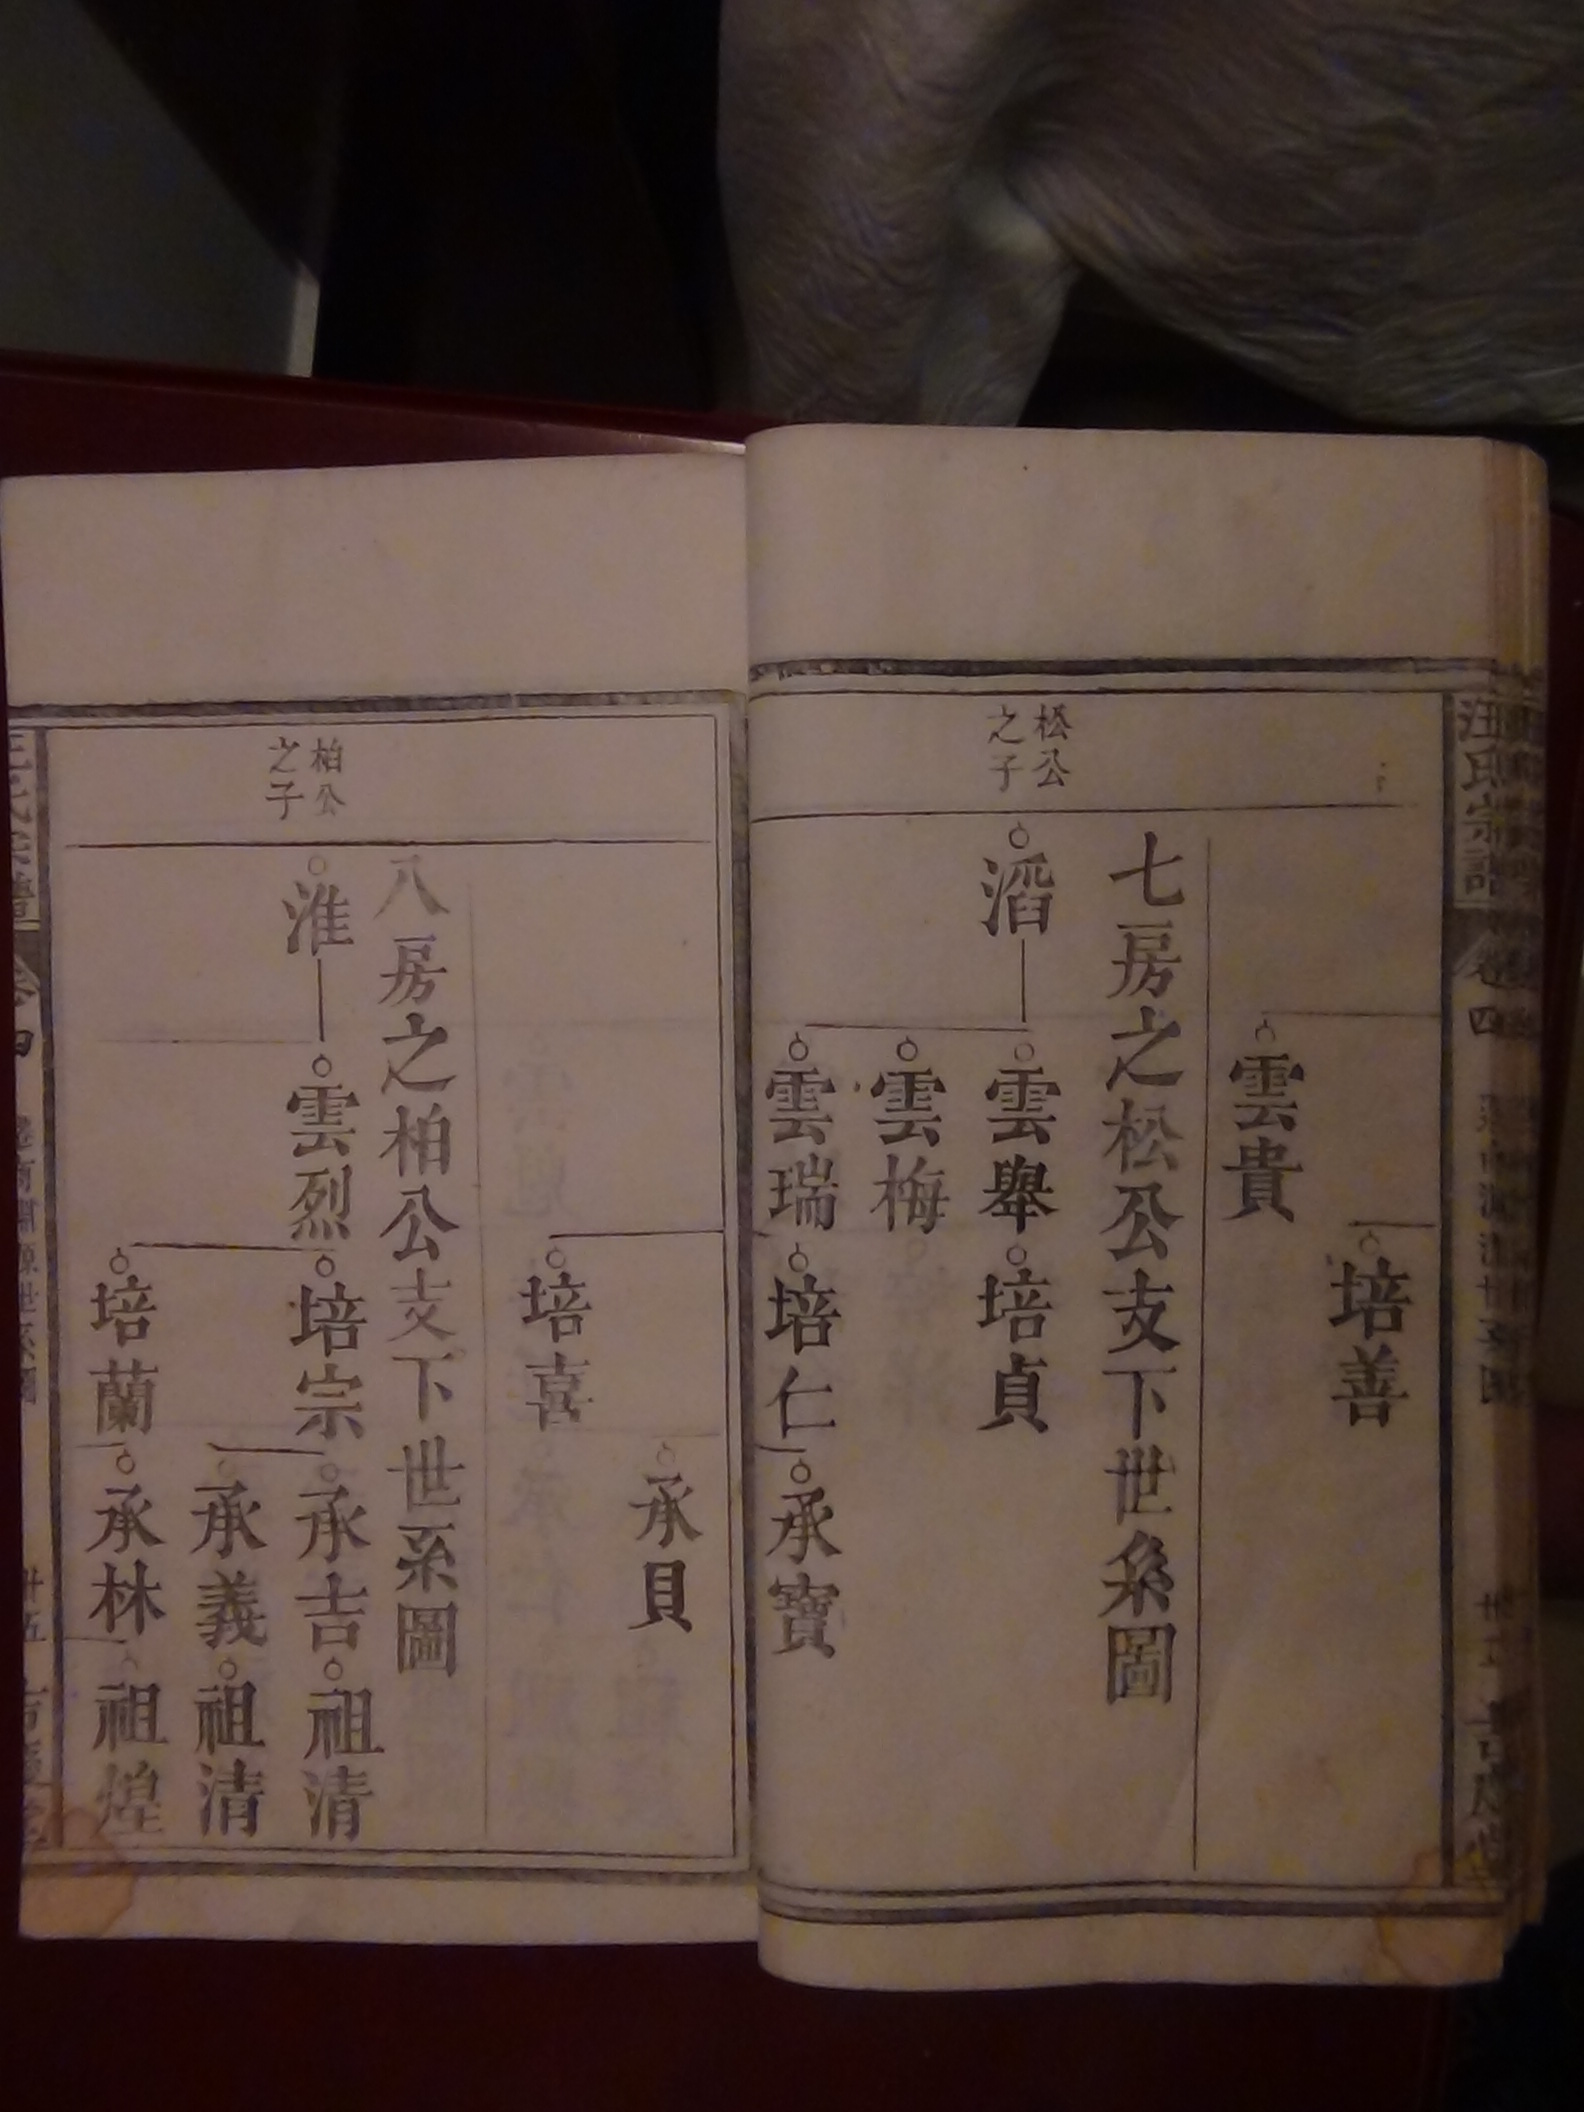 汪氏宗譜
卷四
培善
雲貴
七房之松公支下世系圖
松公
之子
滔
雲舉
培貞
雲梅
雲瑞
培仁
承寶
承貝
培喜
八房之柏公支下世系圖
柏公
之子
淮
雲烈
培宗
承吉
祖清
承義
祖清
培蘭
承林
祖煌
卷四